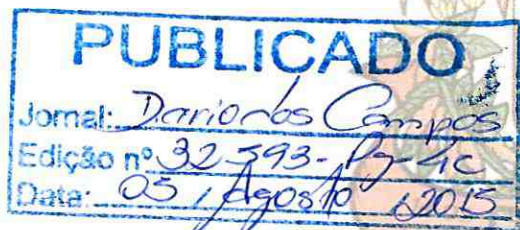 PUBLICADO
Jornal: Diario dos Campos
Edição nº 32.593 - Pg-4C
Data: 05 / Agosto / 2015